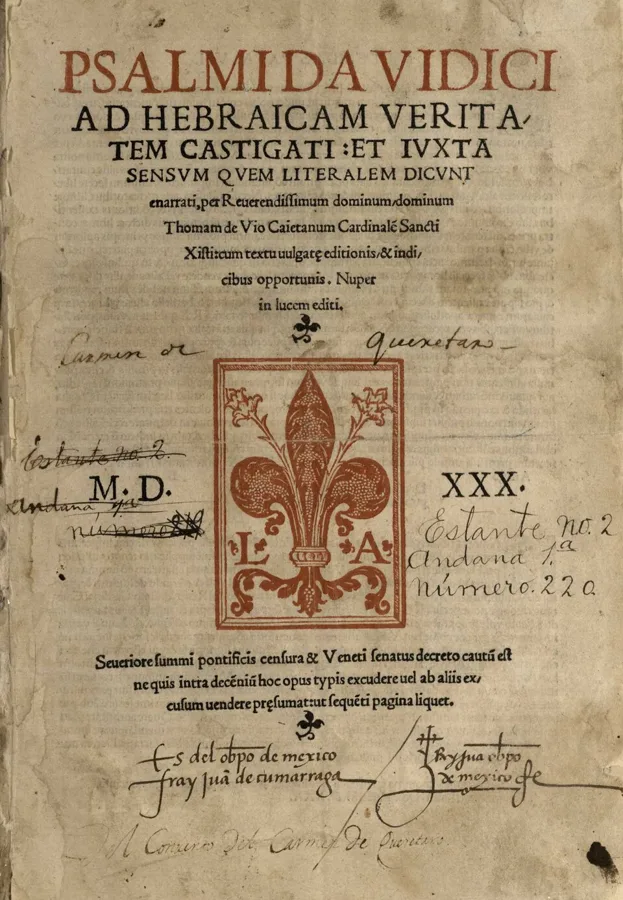 PSALMI DAVIDICI
AD HEBRAICAM VERITA-
TEM CASTIGATI: ET IVXTA
SENSVM QVEM LITERALEM DICVNT
enarrati, per Reuerendissimum dominum/dominum
Thomam de Vio Caietanum Cardinalē Sancti
Xisti: cum textu uulgatę editionis/& indi/
cibus opportunis. Nuper
in lucem editi.
Carmen de Queretaro
Estante no. 2.
M. D. XXX.
andana
número
Estante no. 2
andana 1.ª
número. 220
L A
Seueriore summi pontificis censura & Veneti senatus decreto cautū est
ne quis intra decēniū hoc opus typis excudere uel ab aliis ex/
cusum uendere pręsumat: ut sequēti pagina liquet.
Es del obpo de mexico
fray Juā de cumarraga
fray Jua obpo
de mexico
Al Convento Del Carmen de Queretaro